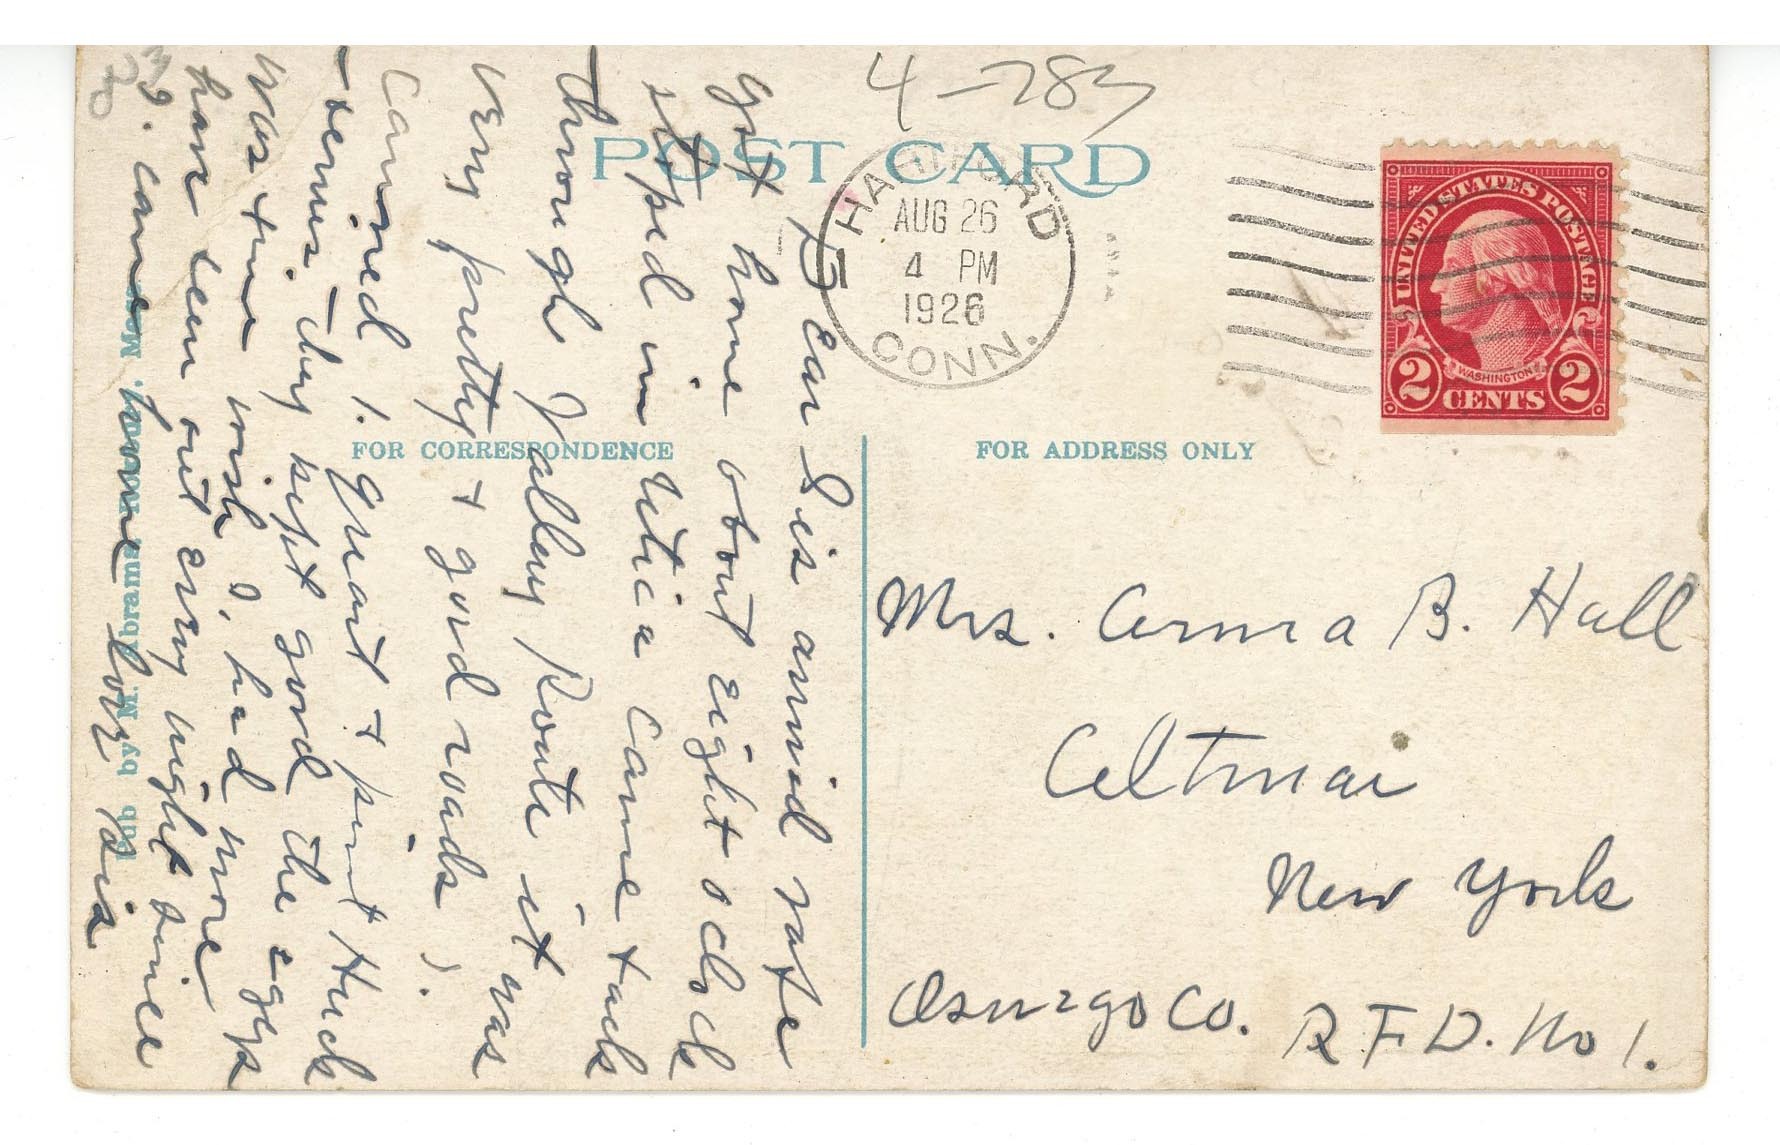 4-783
POST CARD
HARTFORD
AUG 26
4 PM
1926
CONN.
5
UNITED STATES POSTAGE
WASHINGTON
2 CENTS 2
FOR CORRESPONDENCE
FOR ADDRESS ONLY
Dear Sis arrived safe
got home about eight oclock
stoped in Utica Came back
through Valley Route it was
very pretty & good roads.
Canned 1. quart & pint Huck
berries. They kept good the eggs
was fine wish I, had more
have been out every night since
I, came home love Sis
Pub by M. Abrams
Mrs. Anna B. Hall
Altmar
New York
Oswego Co. R F D. No 1.